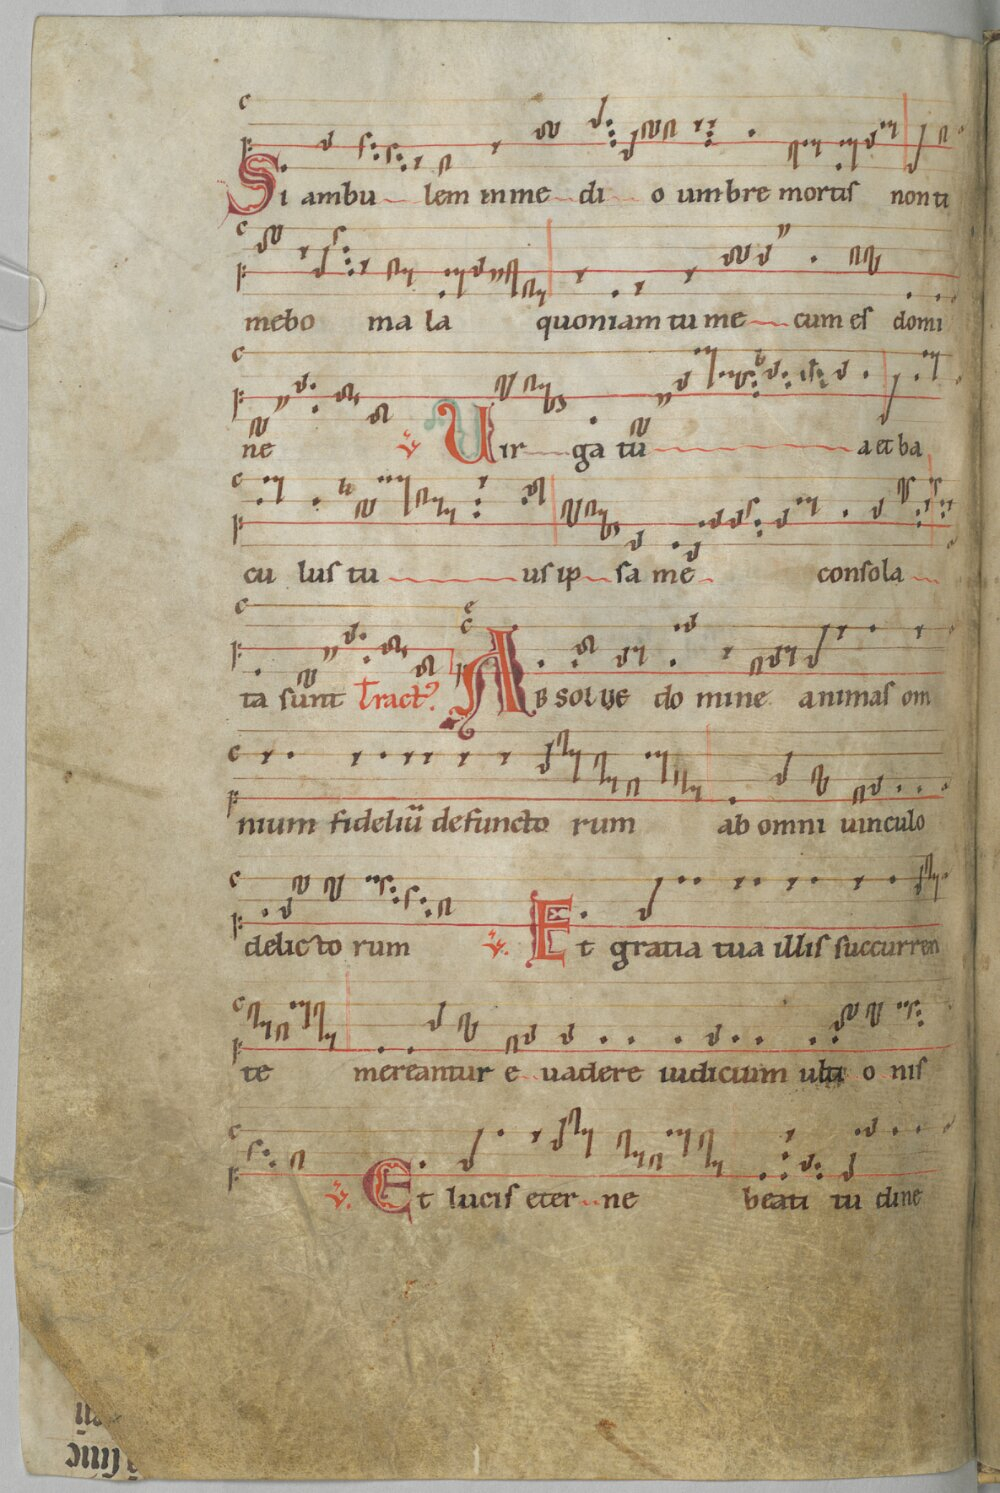 Si ambu lem in me di o umbre mortis non ti
mebo ma la quoniam tu me cum es domi
ne ℣. Uir ga tu a et ba
cu lus tu us ip sa me consola
ta sunt Tract⁹ ABSOLVE do mine animas om
nium fideliū defuncto rum ab omni uinculo
delicto rum ℣. Et gratia tua illis succurren
te mereantur e uadere iudicium ulti o nis
℣. Et lucis eter ne beati tu dine